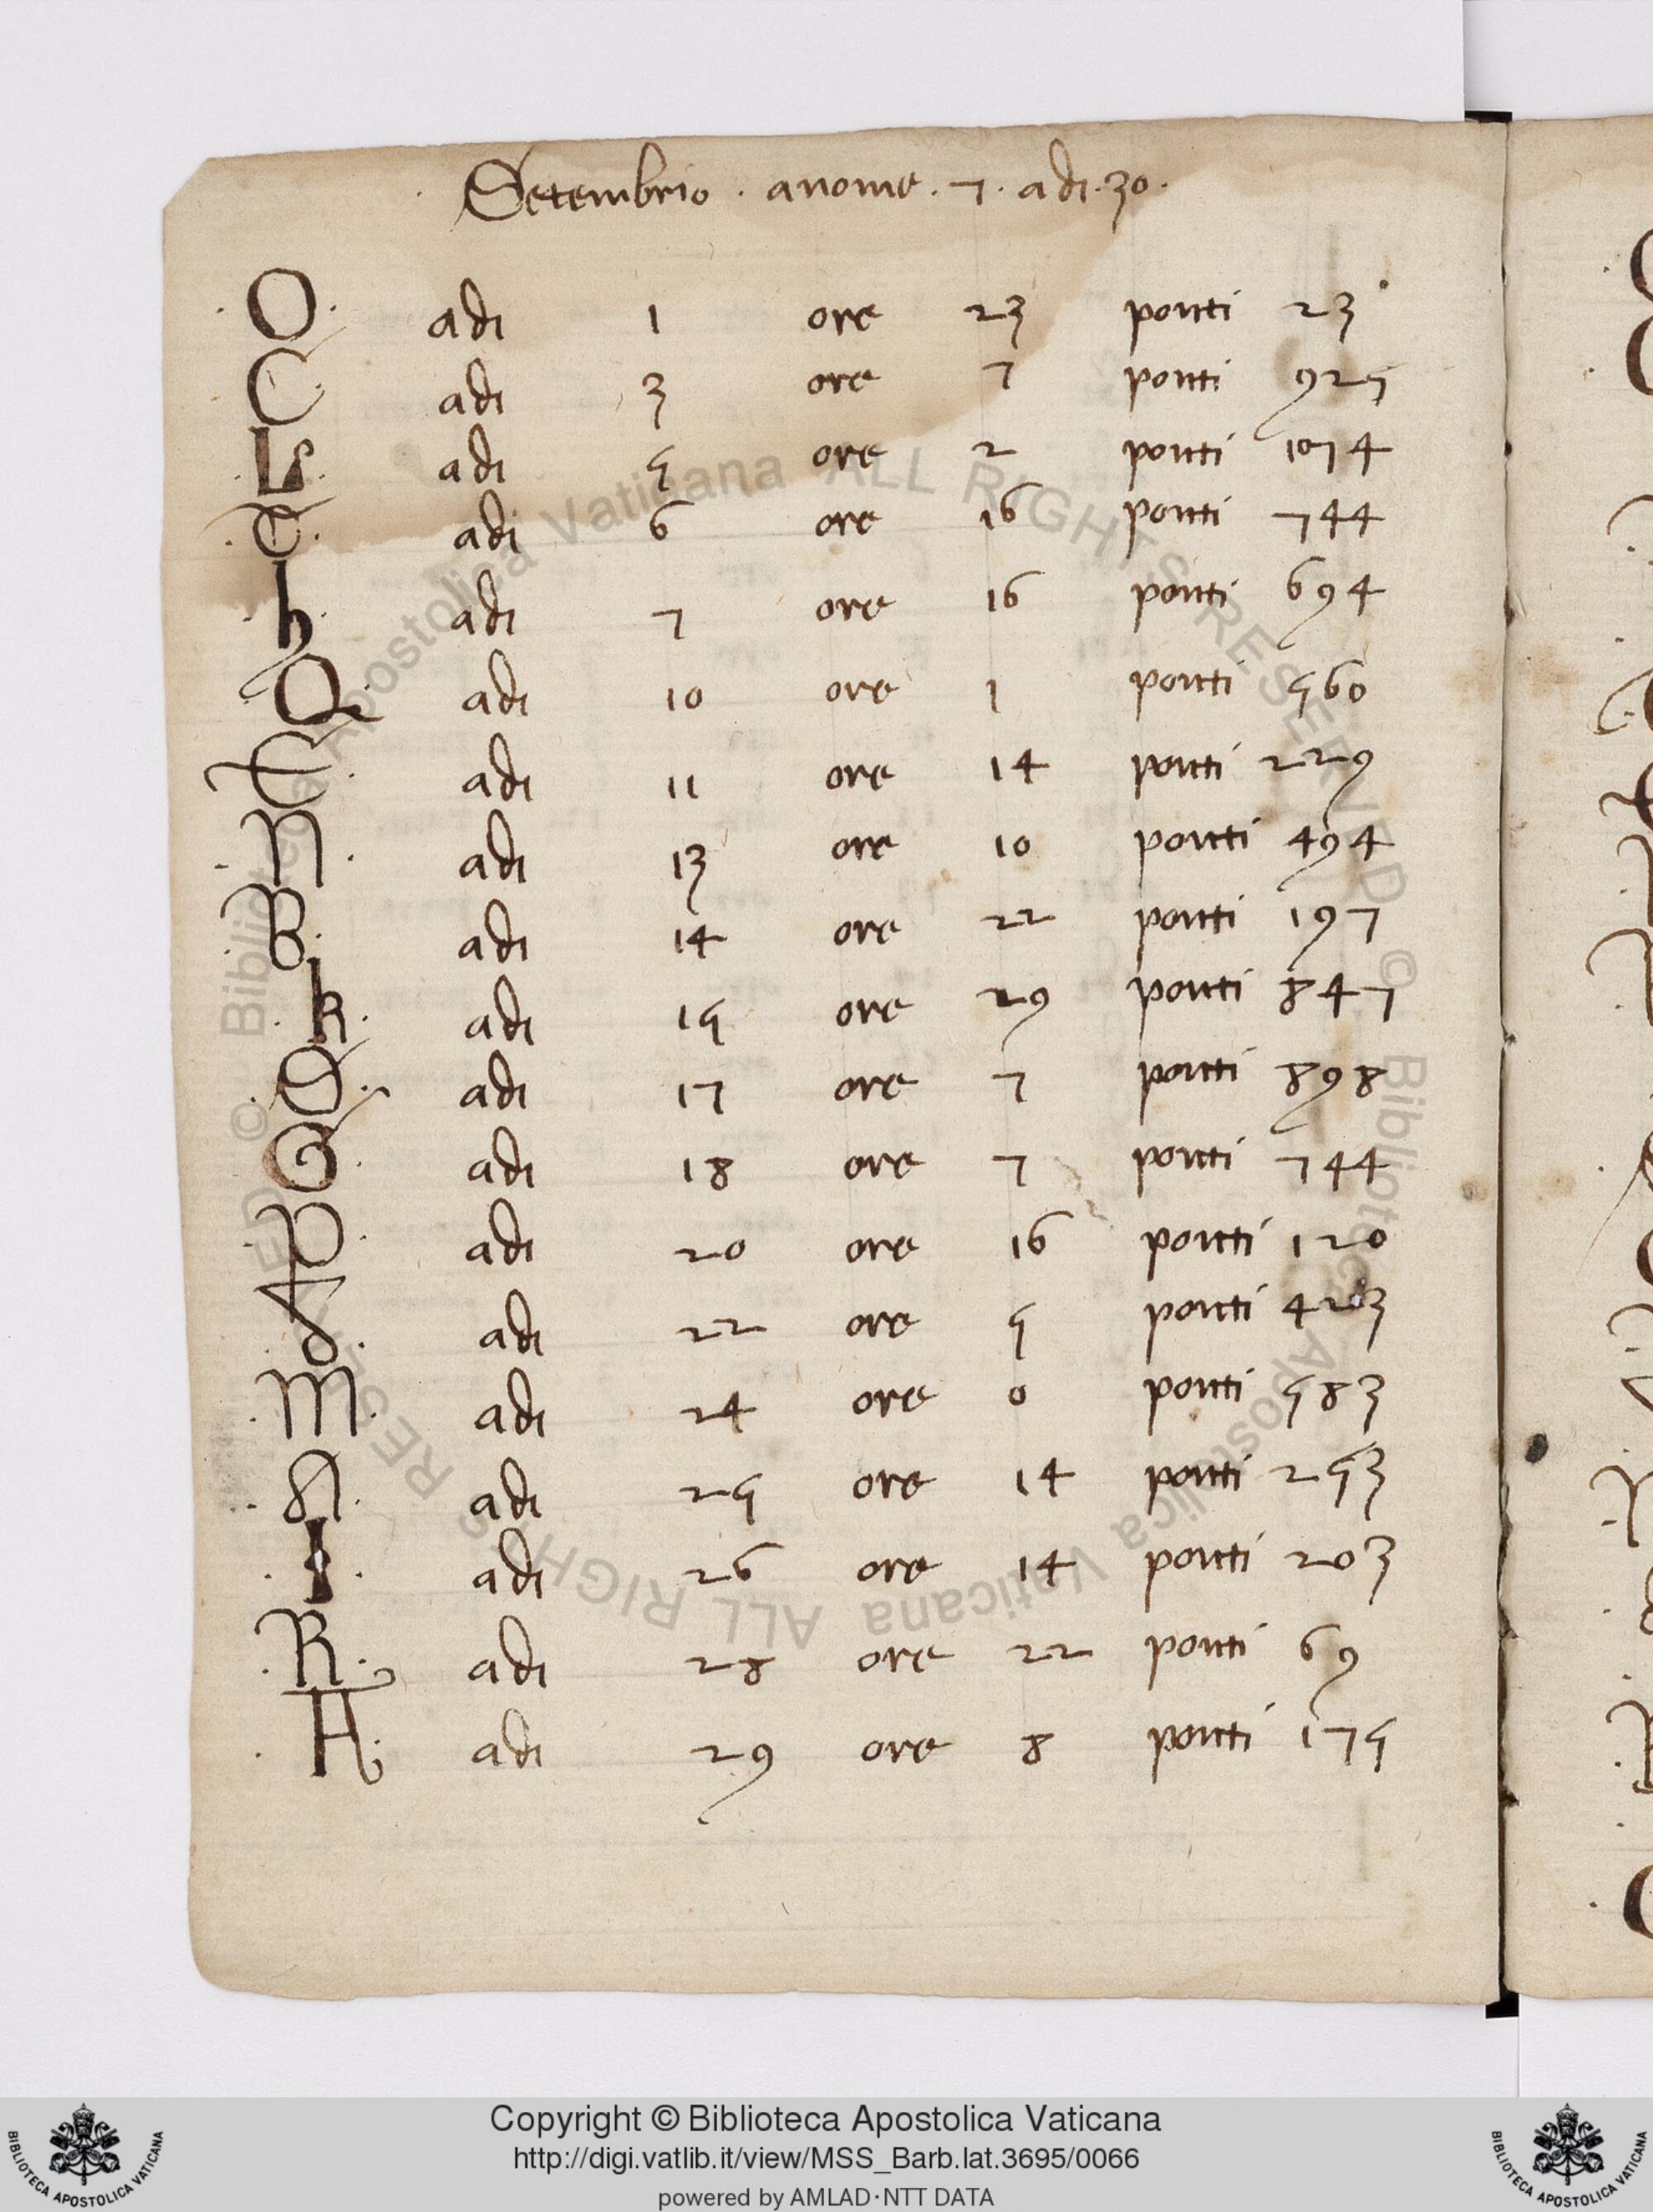 Setembrio . anome . 7 . adi . 30 .
. O . adi 1 ore 23 ponti 23
C adi 3 ore 7 ponti 925
. L . adi 5 ore 2 ponti 1074
. T . adi 6 ore 16 ponti 744
. h . adi 7 ore 16 ponti 694
Q . adi 10 ore 1 ponti 560
adi 11 ore 14 ponti 229
. N . adi 13 ore 10 ponti 494
B . adi 14 ore 22 ponti 197
. k . adi 15 ore 29 ponti 847
D . adi 17 ore 7 ponti 898
G . adi 18 ore 7 ponti 744
. P . adi 20 ore 16 ponti 120
adi 22 ore 5 ponti
. M . adi 24 ore 0 ponti 583
. A . adi 25 ore 14 ponti 253
. I . adi 26 ore 14 ponti 203
. R . adi 28 ore 22 ponti 69
. H . adi 29 ore 8 ponti 175
© Biblioteca Apostolica Vaticana ALL RIGHTS RESERVED © Biblioteca Apostolica Vaticana ALL RIGHTS RESERVED
Copyright © Biblioteca Apostolica Vaticana
http://digi.vatlib.it/view/MSS_Barb.lat.3695/0066
powered by AMLAD·NTT DATA
BIBLIOTECA APOSTOLICA VATICANA
BIBLIOTECA APOSTOLICA VATICANA